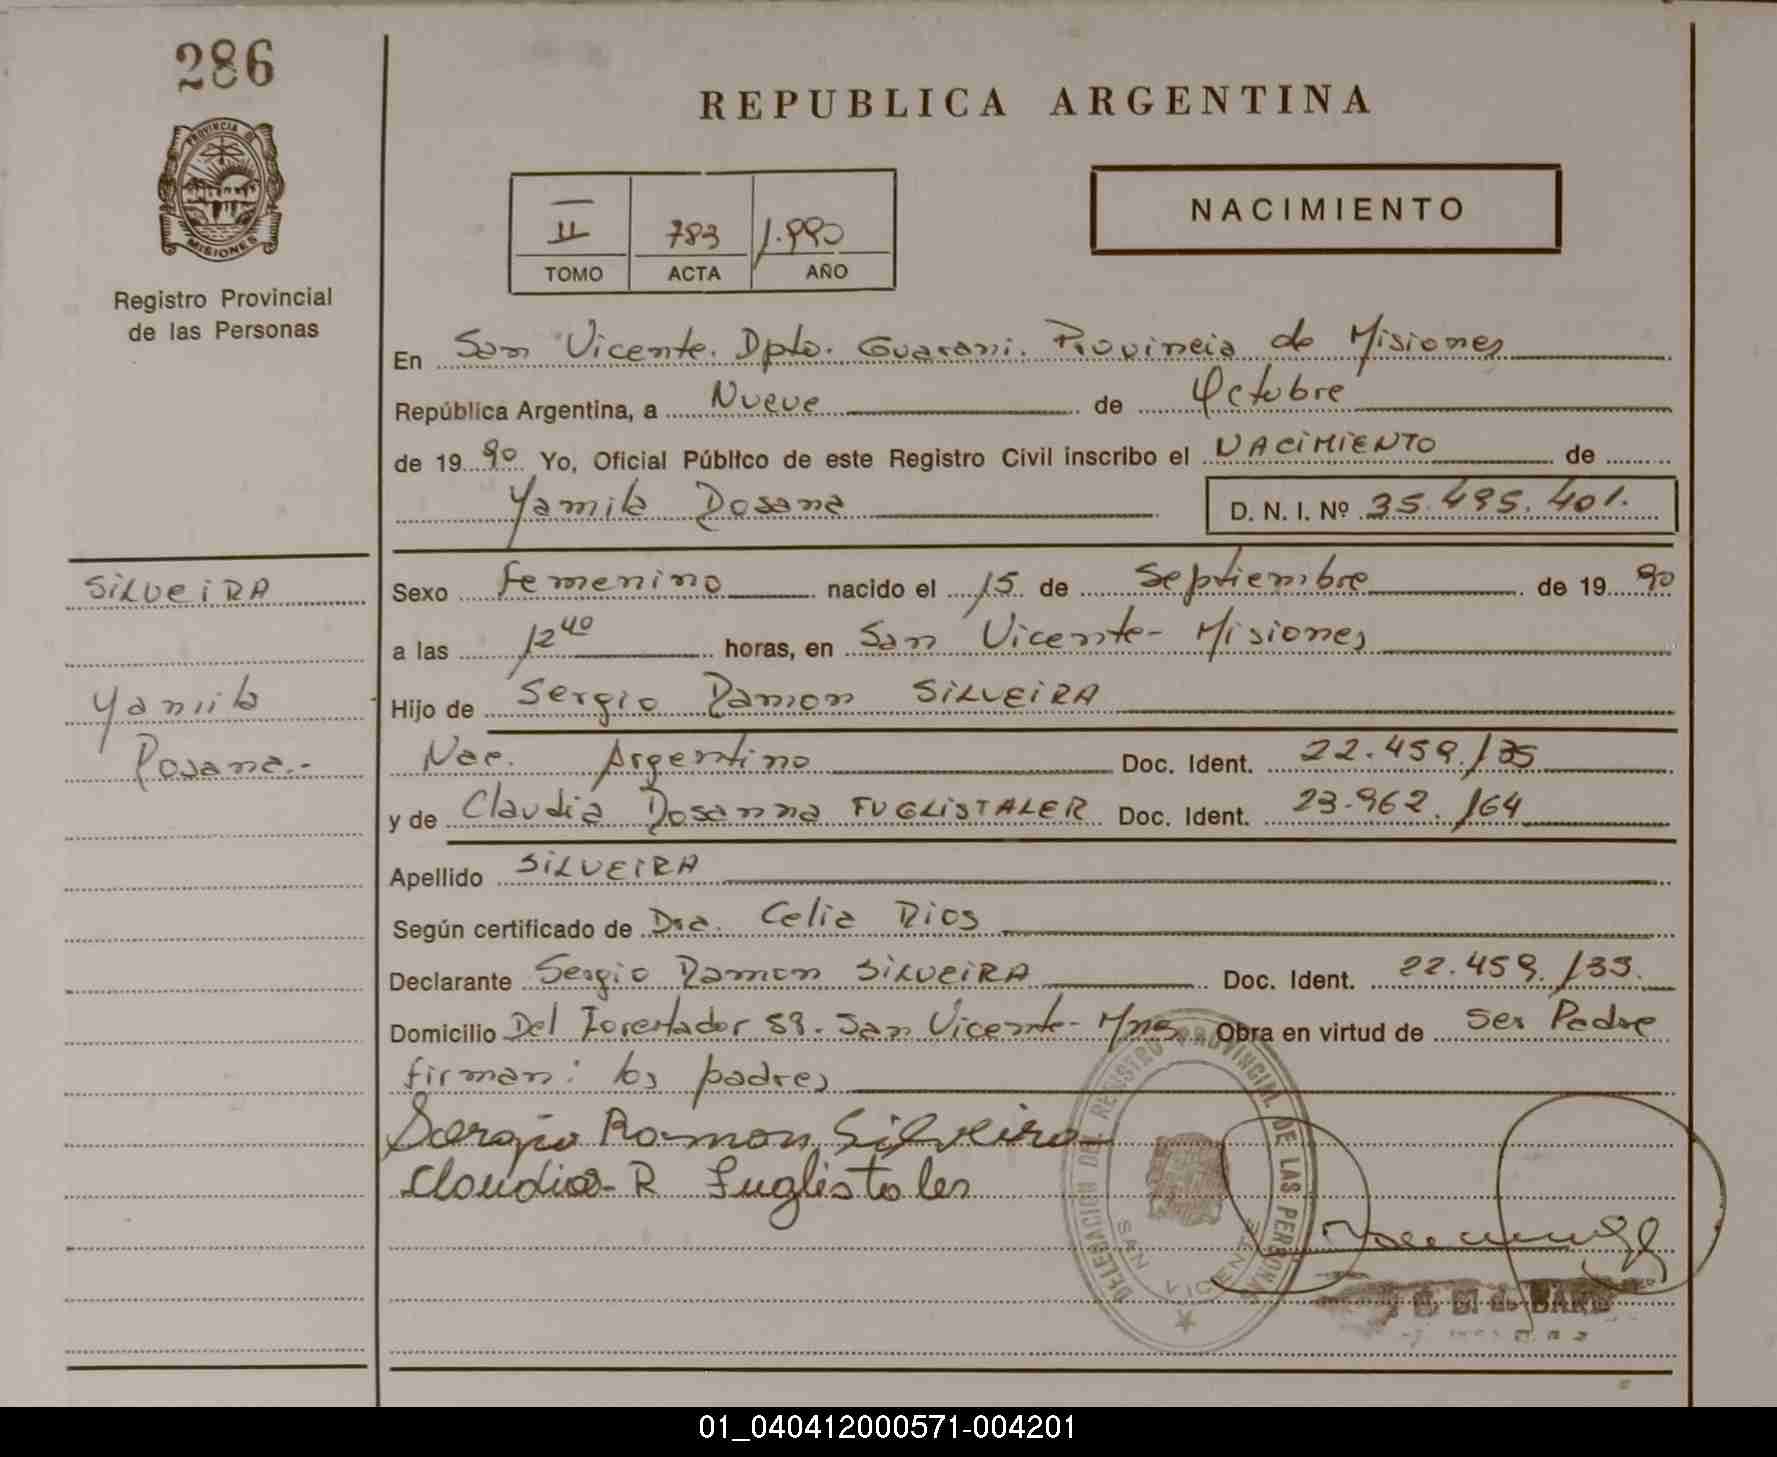 286
PROVINCIA DE
MISIONES
Registro Provincial
de las Personas
REPUBLICA ARGENTINA
NACIMIENTO
II 783 1.990
TOMO ACTA AÑO
En San Vicente. Dpto. Guarani. Provincia de Misiones
República Argentina, a Nueve de Octubre
de 19 90 Yo, Oficial Público de este Registro Civil inscribo el NACIMIENTO de
Yamila Rosana D. N. I. Nº 35.495.401.
SILVEIRA
Yamila
Rosana.-
Sexo Femenino nacido el 15 de Septiembre de 19 90
a las 12 40 horas, en San Vicente - Misiones
Hijo de Sergio Ramon SILVEIRA
Nac. Argentino Doc. Ident. 22.459./35
y de Claudia Rosanna FUGLISTALER Doc. Ident. 23.962./64
Apellido SILVEIRA
Según certificado de Dra. Celia Rios
Declarante Sergio Ramon SILVEIRA Doc. Ident. 22.459./35.
Domicilio Del Forestador 59. San Vicente - Mnes Obra en virtud de Ser Padre
firman: los padres
Sergio Ramon Silveira
Claudia R Fuglistaler
DELEGACION DEL REGISTRO PROVINCIAL DE LAS PERSONAS
SAN VICENTE
01_040412000571-004201